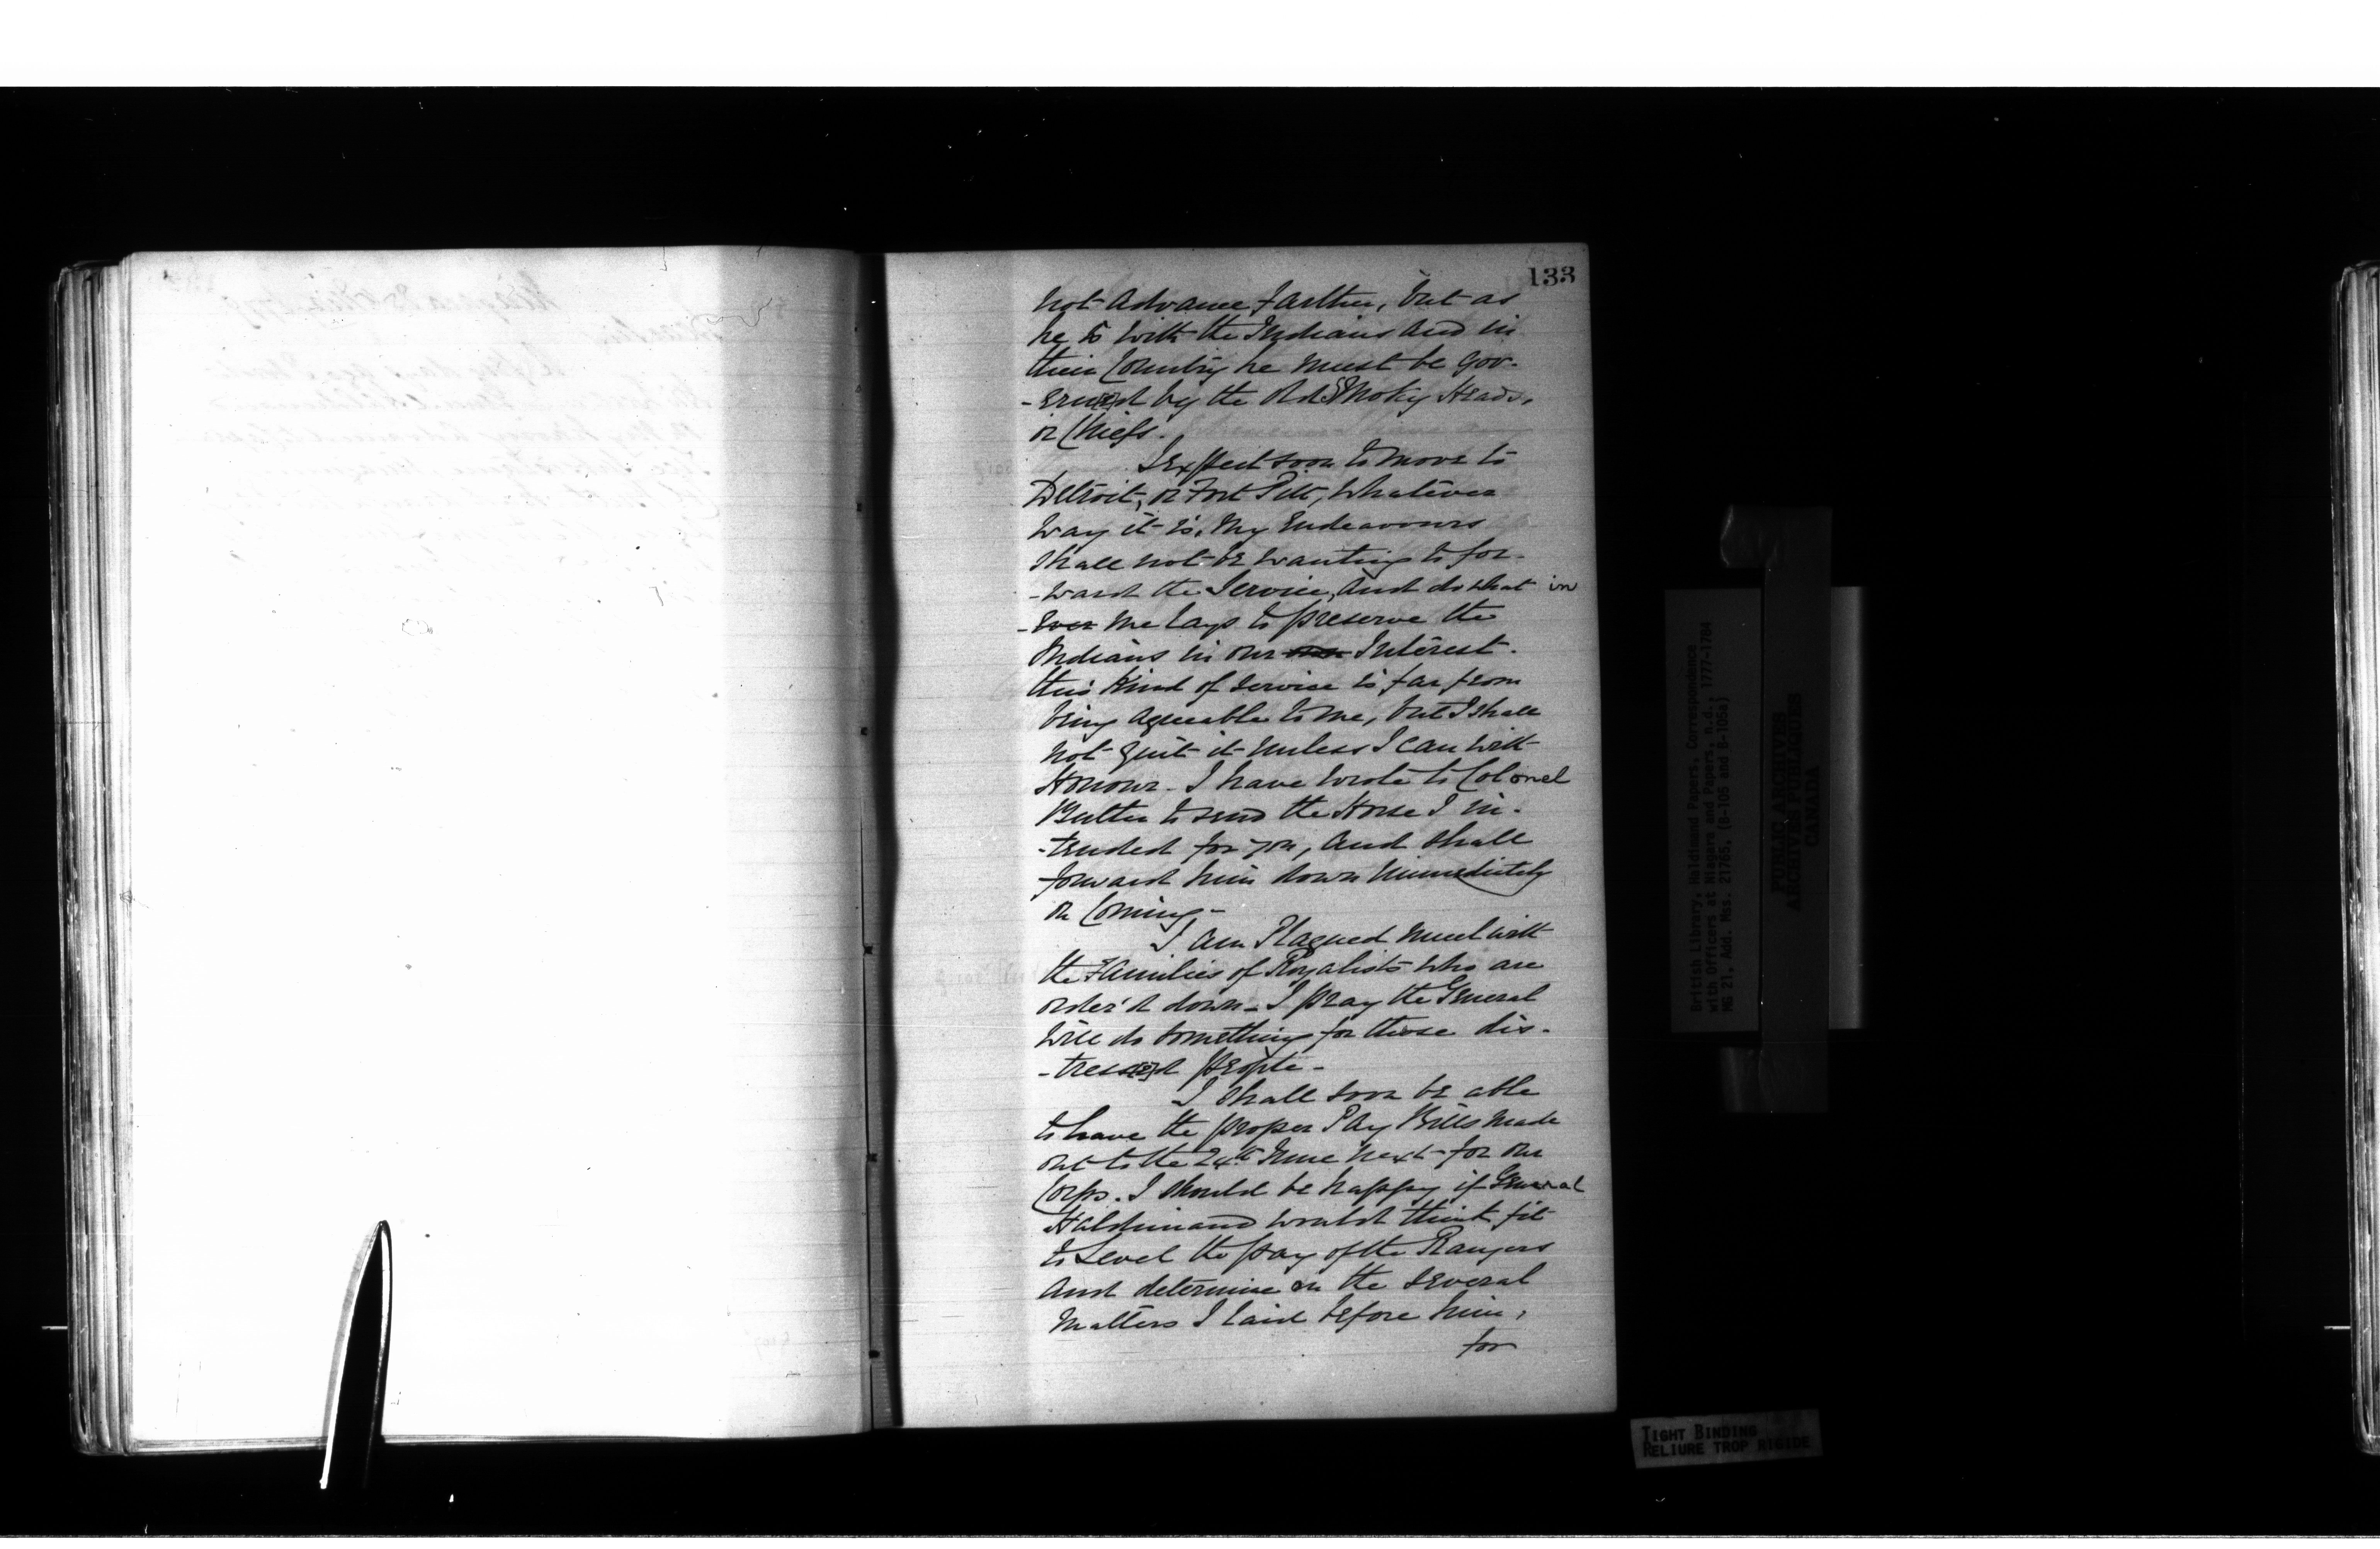 133
not advance farther, but as
he is with the Indians and in
their Country he must be gov-
-ern[e]d by the Old Smoky Heads,
or Chiefs.
I expect soon to move to
Detroit, or Fort Pitt, whatever
way it is, my Endeavours
shall not be wanting to for-
-ward the Service, and do what in
-ever me lays to preserve the
Indians in our Interest.
this kind of service is far from
being agreeable to me, but I shall
not quit it unless I can with
Honour. I have wrote to Colonel
Butler to send the Horse I in-
-tended for you, and shall
forward him down immediately
on Coming-
I am Plagued much with
the Families of Royalists who are
order'd down - I pray the General
will do something for those dis-
-tress[e]d people -
I shall soon be able
to have the proper Pay Bills made
out to the 24th June next for our
Corps. I should be happy if General
Haldimand would think fit
to Level the pay of the Rangers
and determine on the several
matters I laid before him,
for
British Library, Haldimand Papers, Correspondence
with Officers at Niagara and Papers, n.d., 1777-1784
MG 21, Add. Mss. 21765, (B-105 and B-105A)
PUBLIC ARCHIVES
ARCHIVES PUBLIQUES
CANADA
TIGHT BINDING
RELIURE TROP RIGIDE